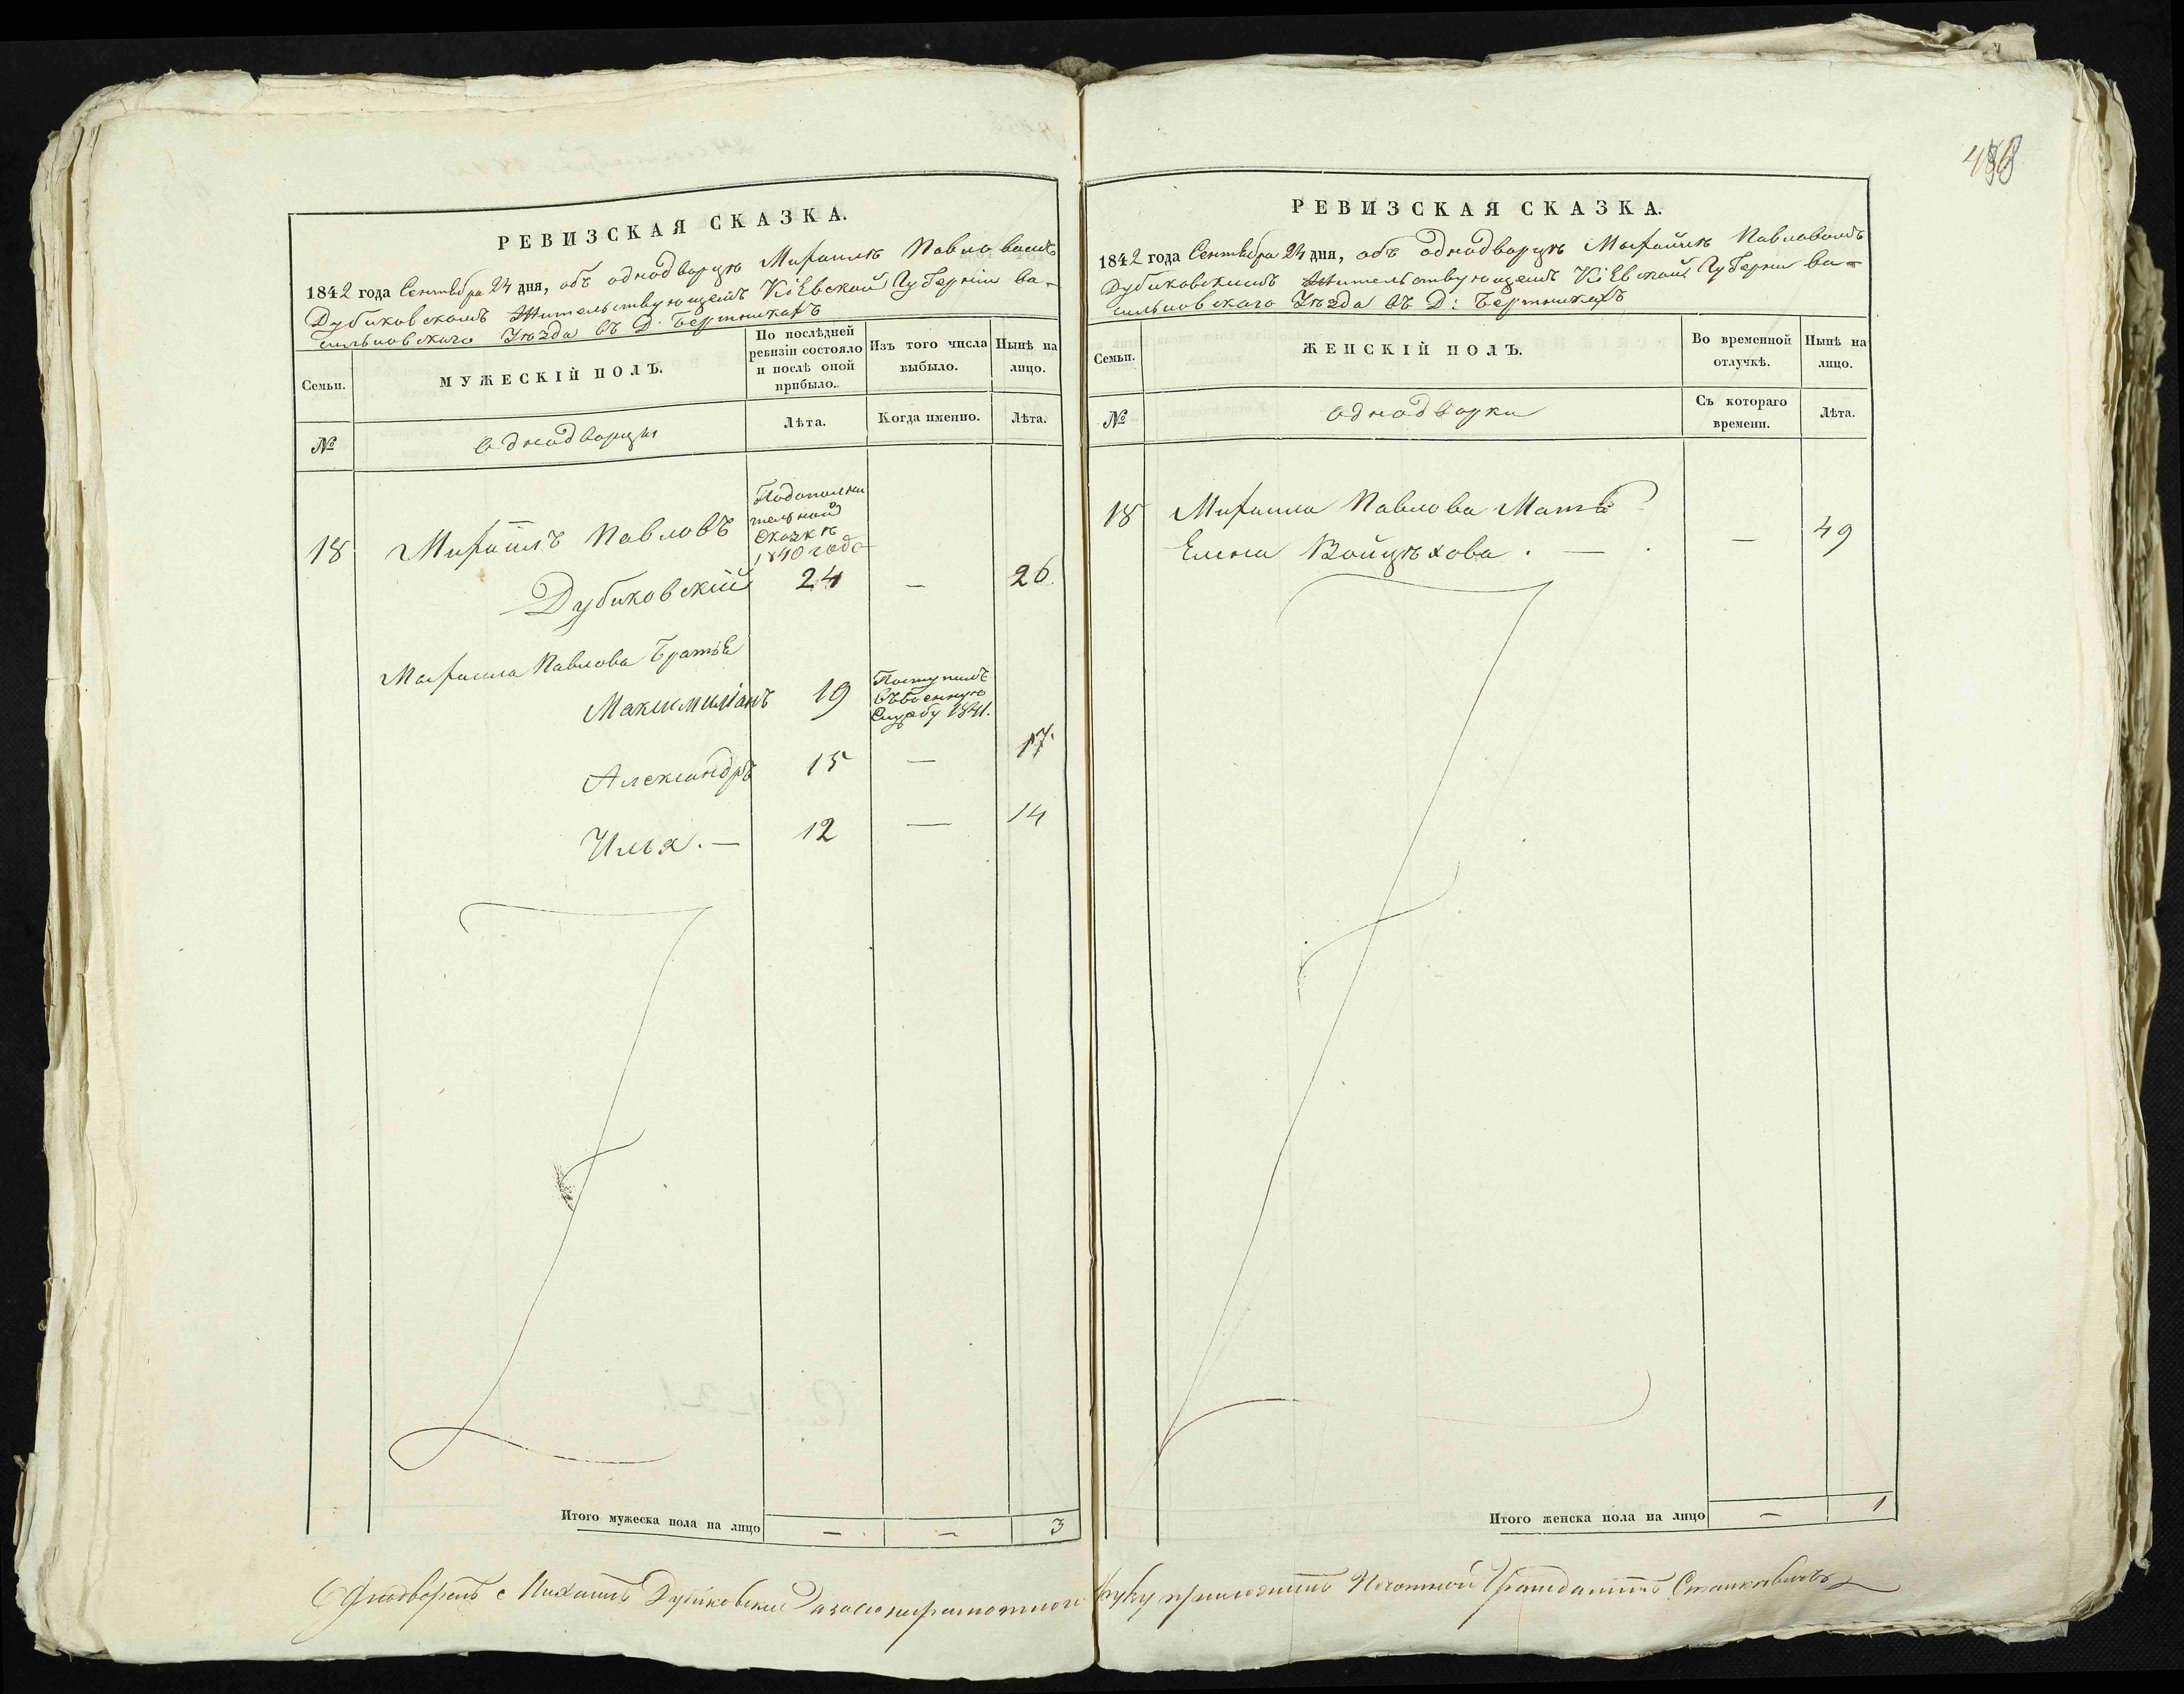 488
РЕВИЗСКАЯ СКАЗКА.
1842 года Сентября 24 дня, объ однодворцѣ Михаилѣ Павловомъ
Дубиковскомъ Жительствующемъ Кіевской Губерніи Ва-
сильковскаго Уѣзда въ Д. Бертникахъ
Семьи.
МУЖЕСКІЙ ПОЛЪ.
По послѣдней
ревизіи состояло
и послѣ оной
прибыло.
Изъ того числа
выбыло.
Нынѣ на
лицо.
№
однодворцы
Лѣта.
Когда именно.
Лѣта.
Подополни
тельной
Сказкѣ
1840 года
18 Михаилъ Павловъ
Дубиковскій 24 — 26.
Михаила Павлова Братья
Максимиліанъ 19
Поступилъ
въ военную
Службу 1841.
Александръ 15 — 17.
Илья. — 12 — 14
Итого мужеска пола на лицо — — 3
РЕВИЗСКАЯ СКАЗКА.
1842 года Сентября 24 дня, объ однодворцѣ Михаилѣ Павловомъ
Дубиковскимъ Жительствующемъ Кіевской Губерніи Ва-
сильковскаго Уѣзда въ Д: Бертникахъ
Семьи.
ЖЕНСКІЙ ПОЛЪ.
Во временной
отлучкѣ.
Нынѣ на
лицо.
№
однодворки
Съ котораго
времени.
Лѣта.
18 Михаила Павлова Мать
Елена Войцѣхова. — — 49
Итого женска пола на лицо — 1
Однодворецъ Михаилъ Дубиковскій а за его неграмотного руку приложилъ Почотной Гражданинъ Станкевичъ